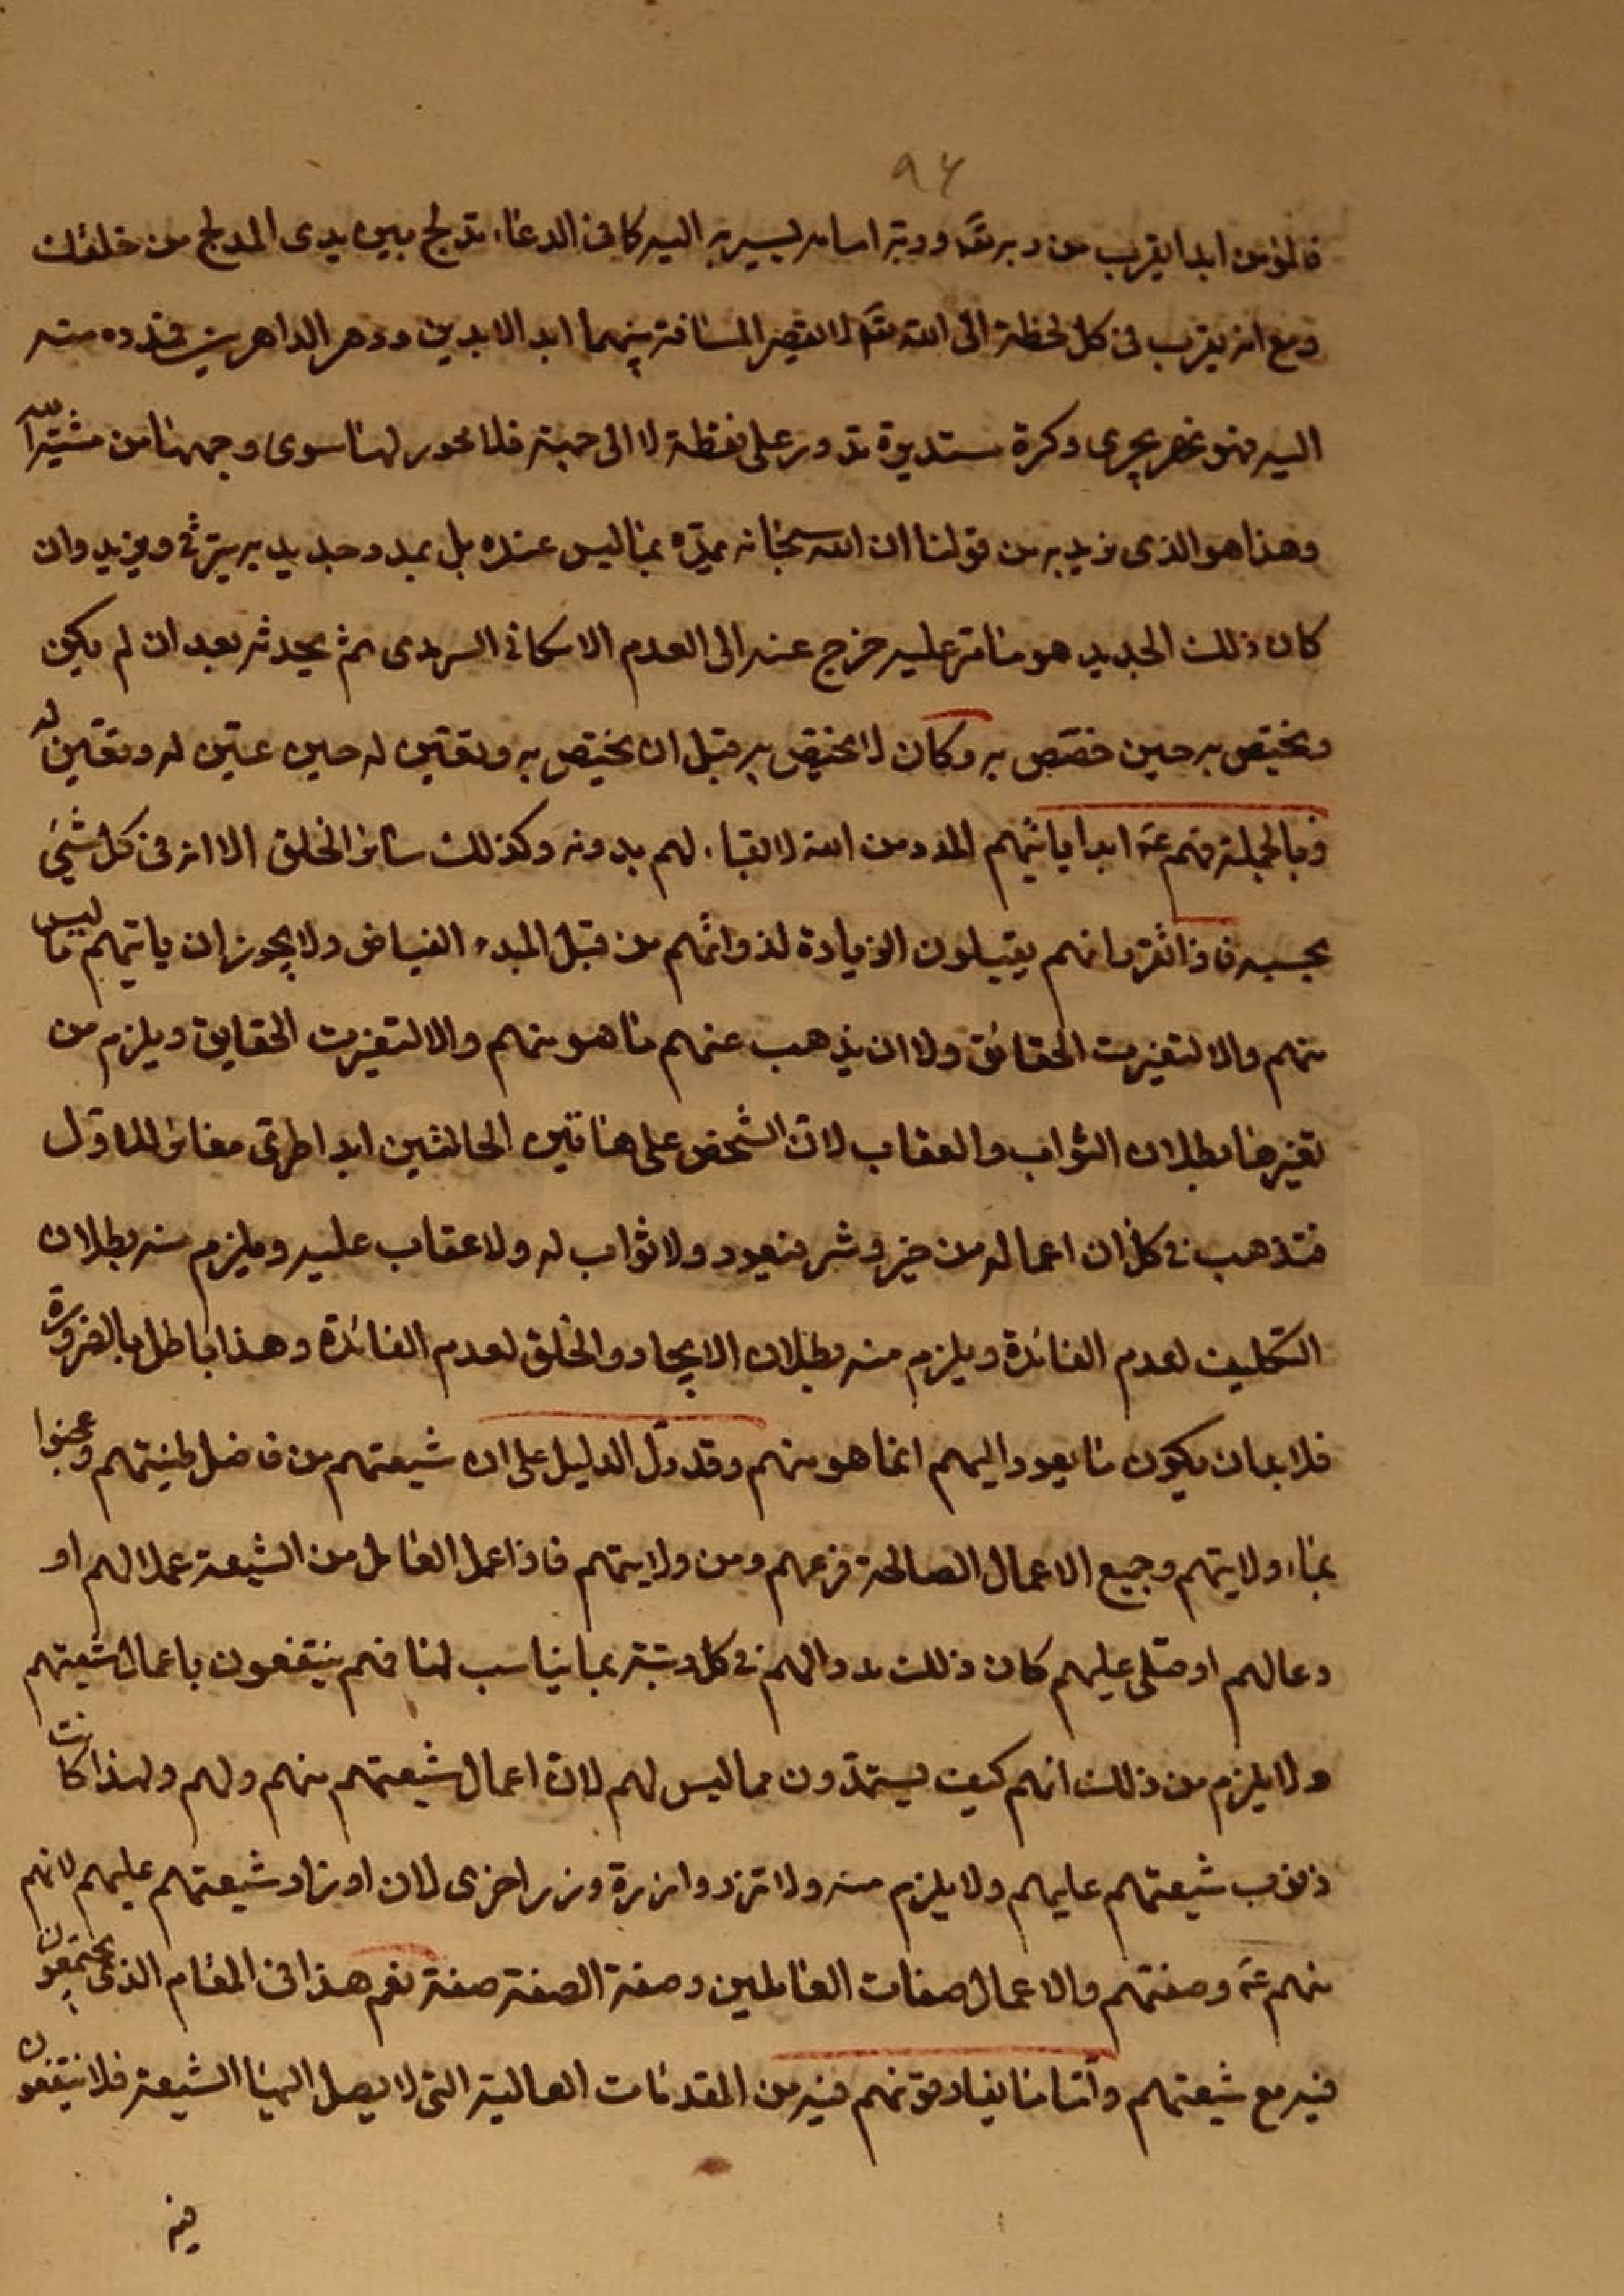 ٩٤
فالمؤمن ابدا يقرب من ربه تعَ وربه امامه يسير به اليه كما فى الدعاء تدلج بين يدى المدلج من خلقك
ومع انه يقرب فى كل لحظة الى الله تعَ لا تقصر المسافة بينهما ابد الابدين ودهر الداهرين فمدده منه
اليه فهو نهر يجرى وكرة مستديرة تدور على نقطة لا الى جهة فلا محور لها سوى وجهها من مشيّة الله
وهذا هو الذى نريد به من قولنا ان الله سبحانه يمدّه بما ليس عنده بل بمدد جديد به يترقى ويزيد وان
كان ذلك الجديد هو مما مرّ عليه خرج عنه الى العدم الامكانى السرمدى ثم يحدثه بعد ان لم يكن
ويختص به حين خصّص به وكان لا يختص به قبل ان يختص به ويتعيّن له حين عيّن له ويتعين له
وبالجملة فهم عَ ابدا ياتيهم المدد من الله لا بقاء لهم بدونه وكذلك سائر الخلق الا انه فى كل شئ
بحسبه فاذا تقرر انهم يقبلون الزيادة لذواتهم من قبل المبدء الفياض ولا يجوز ان ياتيهم ما ليس
منهم والا لتغيرت الحقائق ولا ان يذهب عنهم ما هو منهم والا لتغيرت الحقايق ويلزم من
تغيرها بطلان الثواب والعقاب لان الشخص على هاتين الحالتين ابدا طرىّ مغاير للاوّل
فتذهب فى كل ان اعماله من خير وشر فيعود ولا ثواب له ولا عقاب عليه ويلزم منه بطلان
التكليف لعدم الفائدة ويلزم منه بطلان الايجاد والخلق لعدم الفائدة وهذا باطل بالضرورة
فلا بد ان يكون ما يعود اليهم انما هو منهم وقد دلّ الدليل على ان شيعتهم من فاضل طينتهم وعجنوا
بماء ولايتهم وجميع الاعمال الصالحة فرعهم ومن ولايتهم فاذا عمل العامل من الشيعة عملا لهم او
دعا لهم او صلى عليهم كان ذلك مددا لهم فى كل رتبة بما يناسب لها فهم ينتفعون باعمال شيعتهم
ولا يلزم من ذلك انهم كيف يستمدّون مما ليس لهم لان اعمال شيعتهم منهم ولهم ولهذا كانت
ذنوب شيعتهم عليهم ولا يلزم منه ولا تزر وازرة وزر اخرى لان اوزار شيعتهم عليهم لانهم
منهم عَ وصفتهم والاعمال صفات العاملين وصفة الصفة صفة نعم هذا فى المقام الذى يجتمعون
فيه مع شيعتهم وامّا ما يفارقونهم فيه من المقدمات العالية التى لا يصل اليها الشيعة فلا ينتفعون
فيه